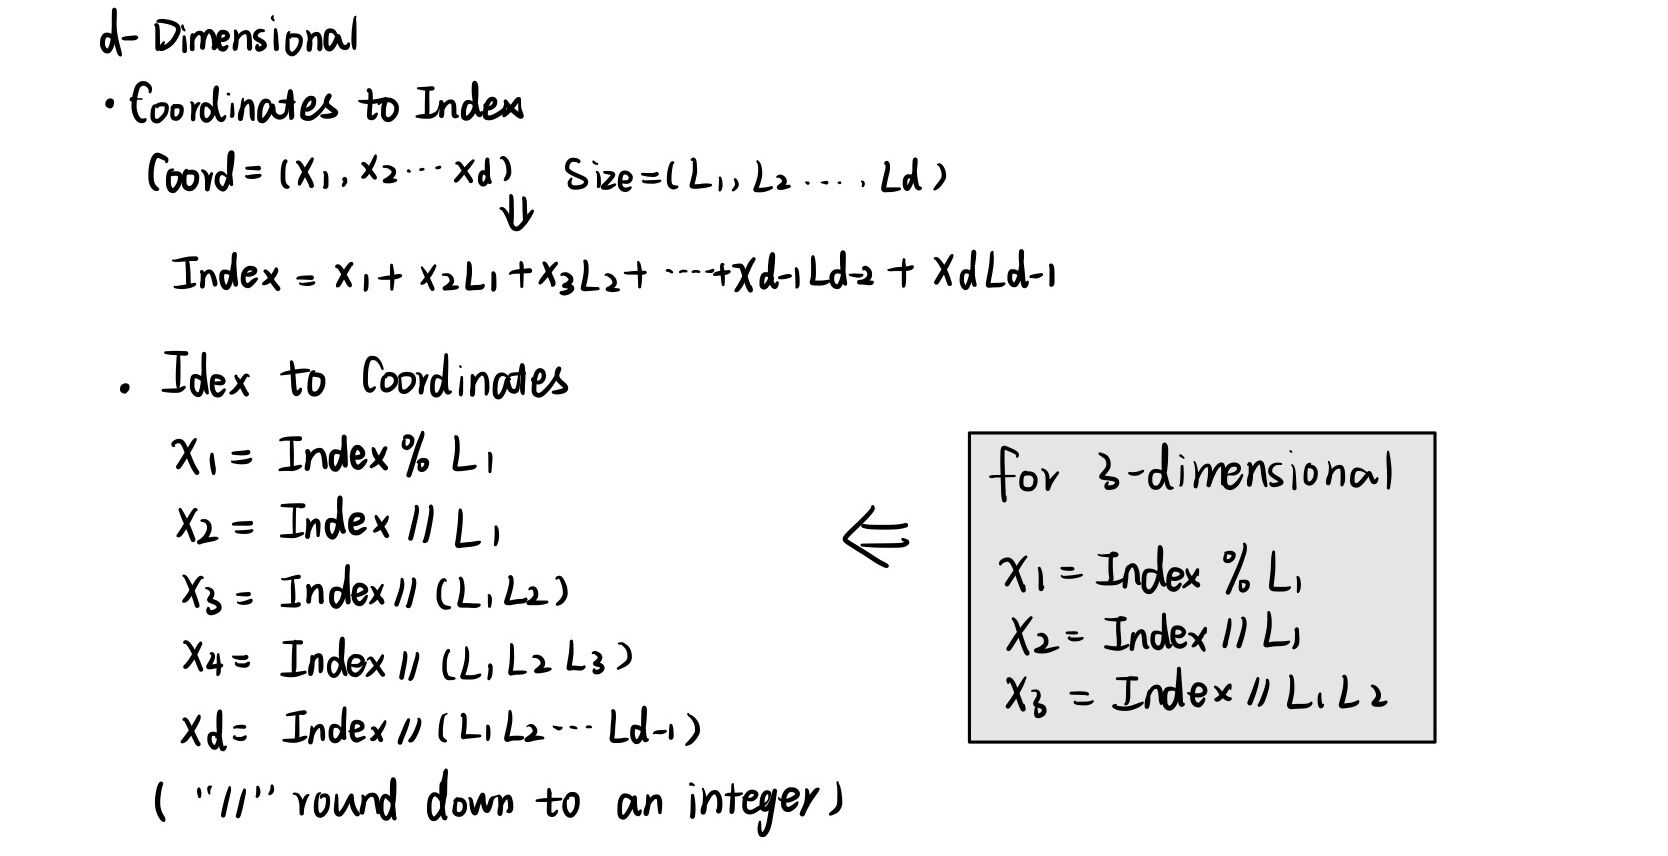 d-Dimensional
· Coordinates to Index
Coord = (x₁, x₂ ··· xd) Size = (L₁, L₂ ····, Ld)
⇓
Index = x₁ + x₂L₁ + x₃L₂ + ····+ xd-1Ld-2 + xdLd-1
· Idex to Coordinates
x₁ = Index % L₁
x₂ = Index // L₁
x₃ = Index // (L₁L₂)
x₄ = Index // (L₁L₂L₃)
xd = Index // (L₁L₂ ··· Ld-1)
( "//" round down to an integer)
⇐
for 3-dimensional
x₁ = Index % L₁
x₂ = Index // L₁
x₃ = Index // L₁L₂